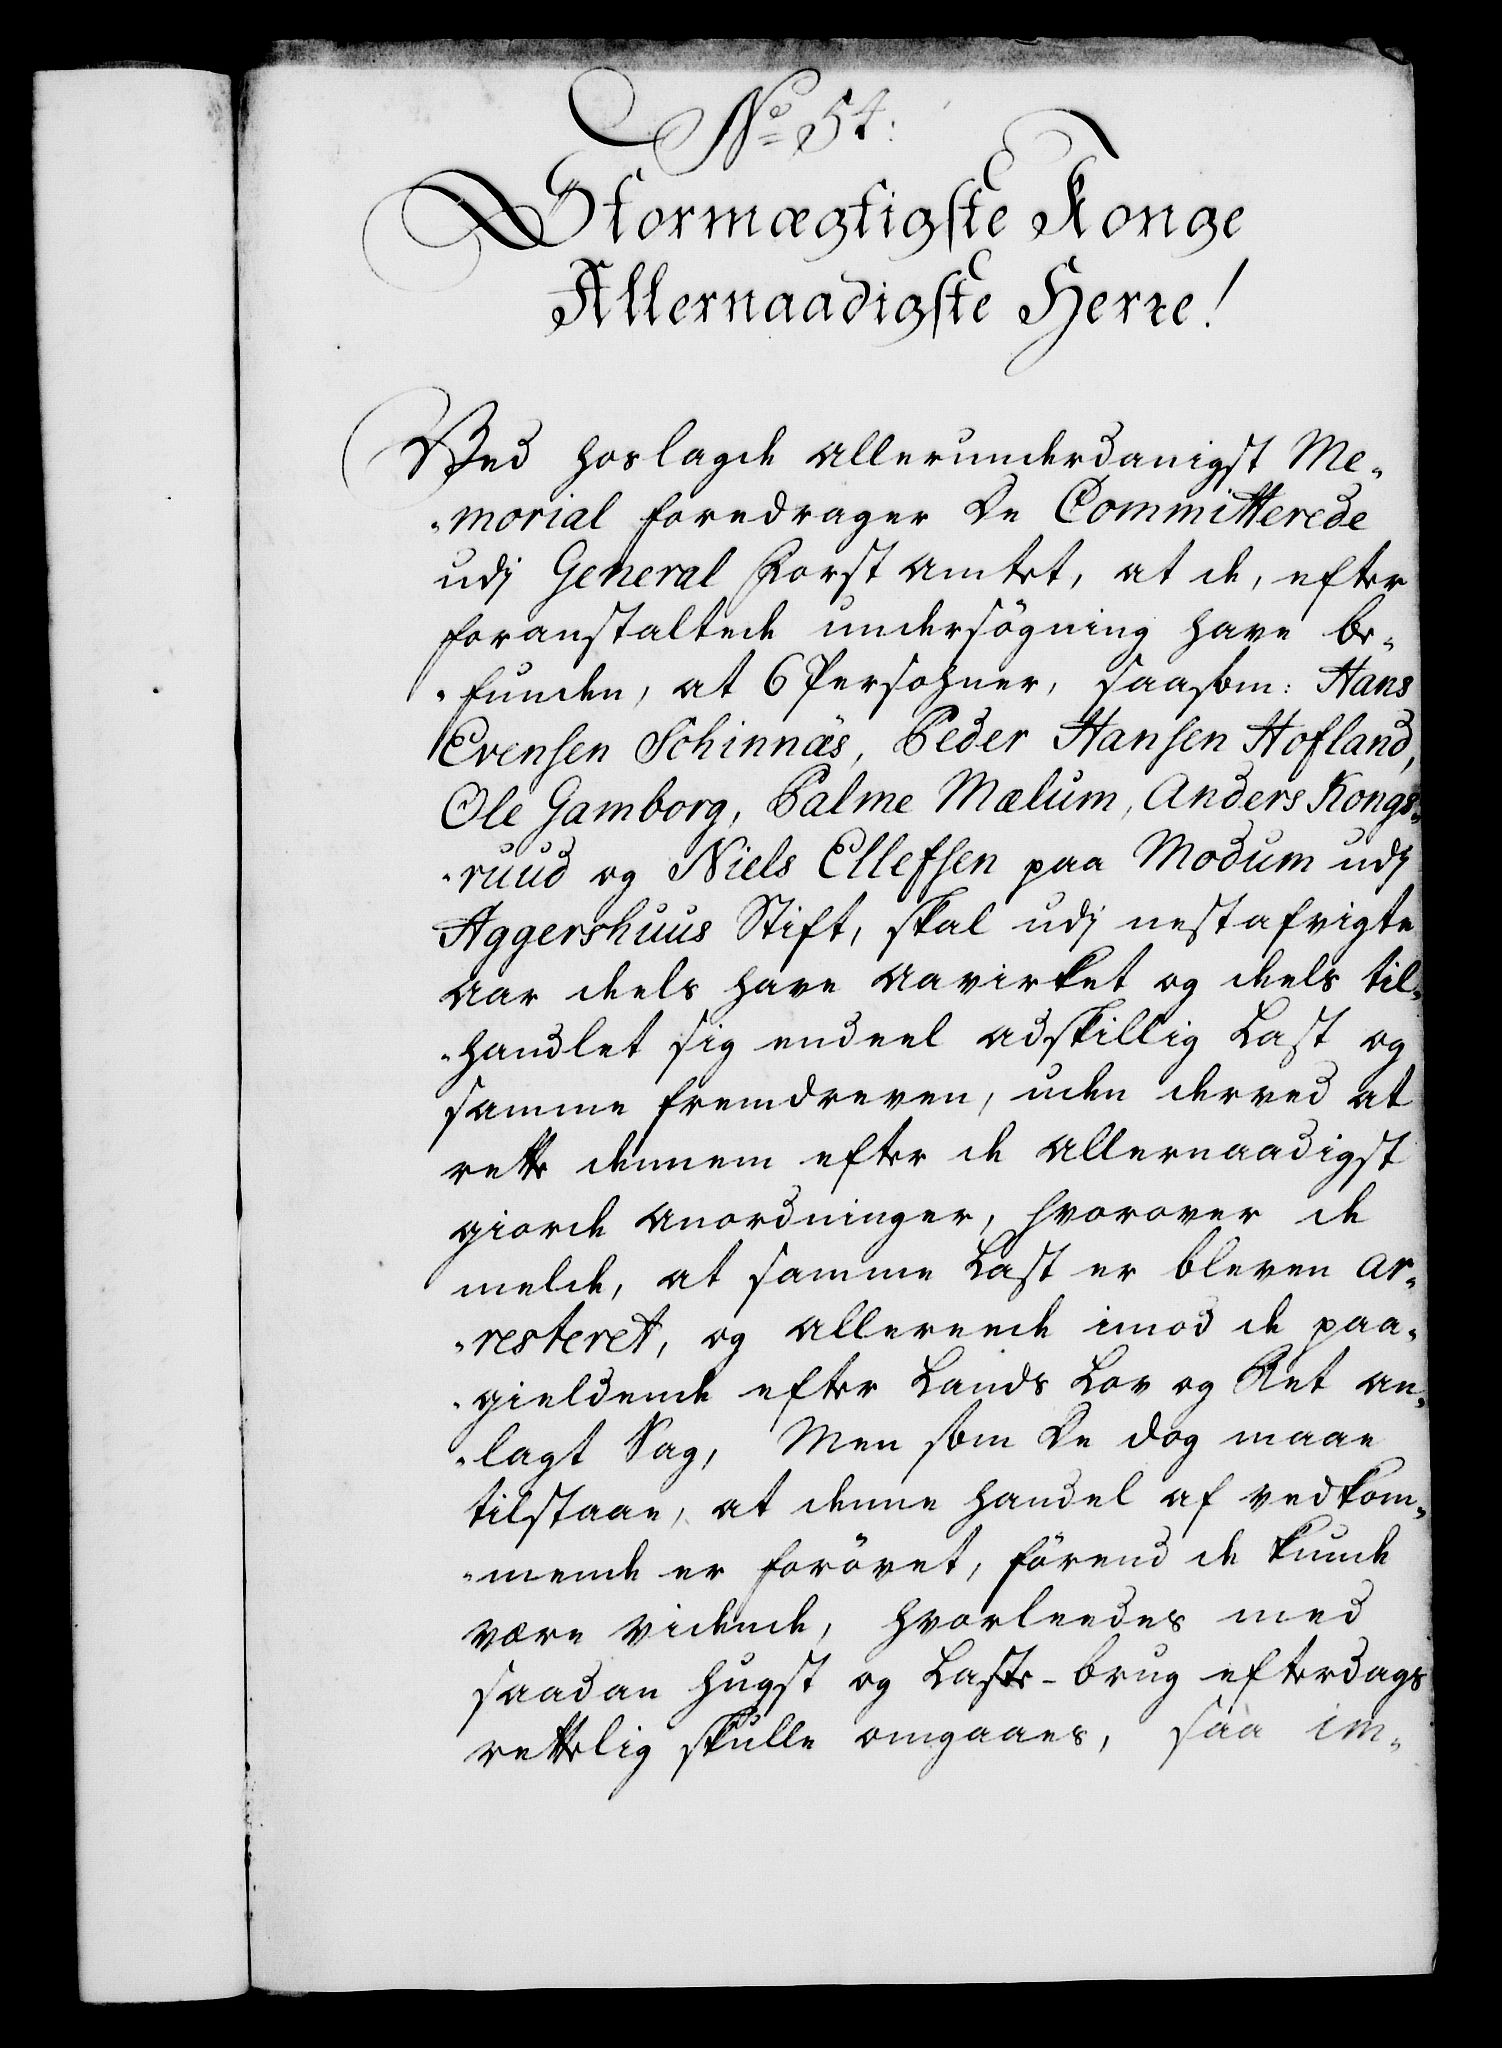 No 54:
Stormægtigste Konge
Allernaadigste Herre!
Ved hoslagde allerunderdanigst Me-
-morial foredrager De Committerede
udj General Forst Amtet, at de, efter
foranstaltede undersögning have be-
-funden, at 6 Persohner, saasom: Hans
Evensen Schinnäs, Peder Hansen Hofland,
Ole Gamborg, Palme Mælum, Anders Kongs-
-ruud og Niels Ellefsen paa Modum udj
Aggershuus Stift, skal udj nestafvigte
Aar deels have aavirket og deels til-
-handlet sig endeel adskillig Last og
samme fremdreven, uden derved at
rette dennem efter de allernaadigst
giorde Anordninger, hvorover de
melde, at samme Last er bleven ar-
-resteret, og allereede imod de paa-
-gieldende efter Lands Lov og Ret an-
-lagt Sag, Men som De dog maae
tilstaae, at denne handel af vedkom-
-mende er forövet, förend de kunde
være vidende, hvorleedes med
saadan hugst og Laste-brug efterdags
rettelig skulle omgaaes, saa im-